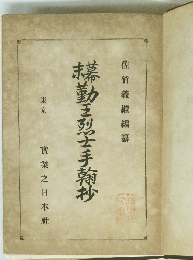 佐竹義継編纂
幕末勤王烈士手翰抄
東京 實業之日本社